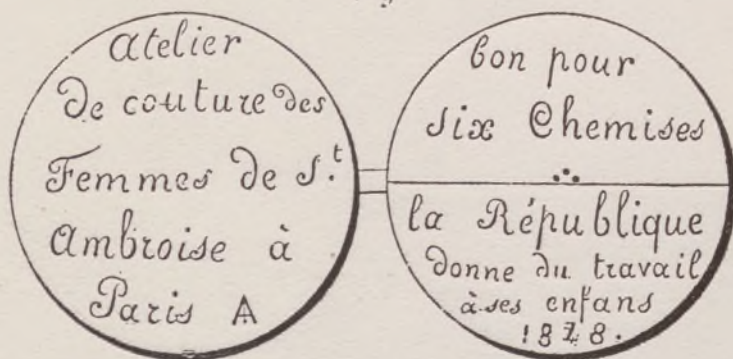 atelier
de couture des
Femmes de S.t
Ambroise à
Paris A
bon pour
six Chemises
la République
donne du travail
à ses enfans
1848.